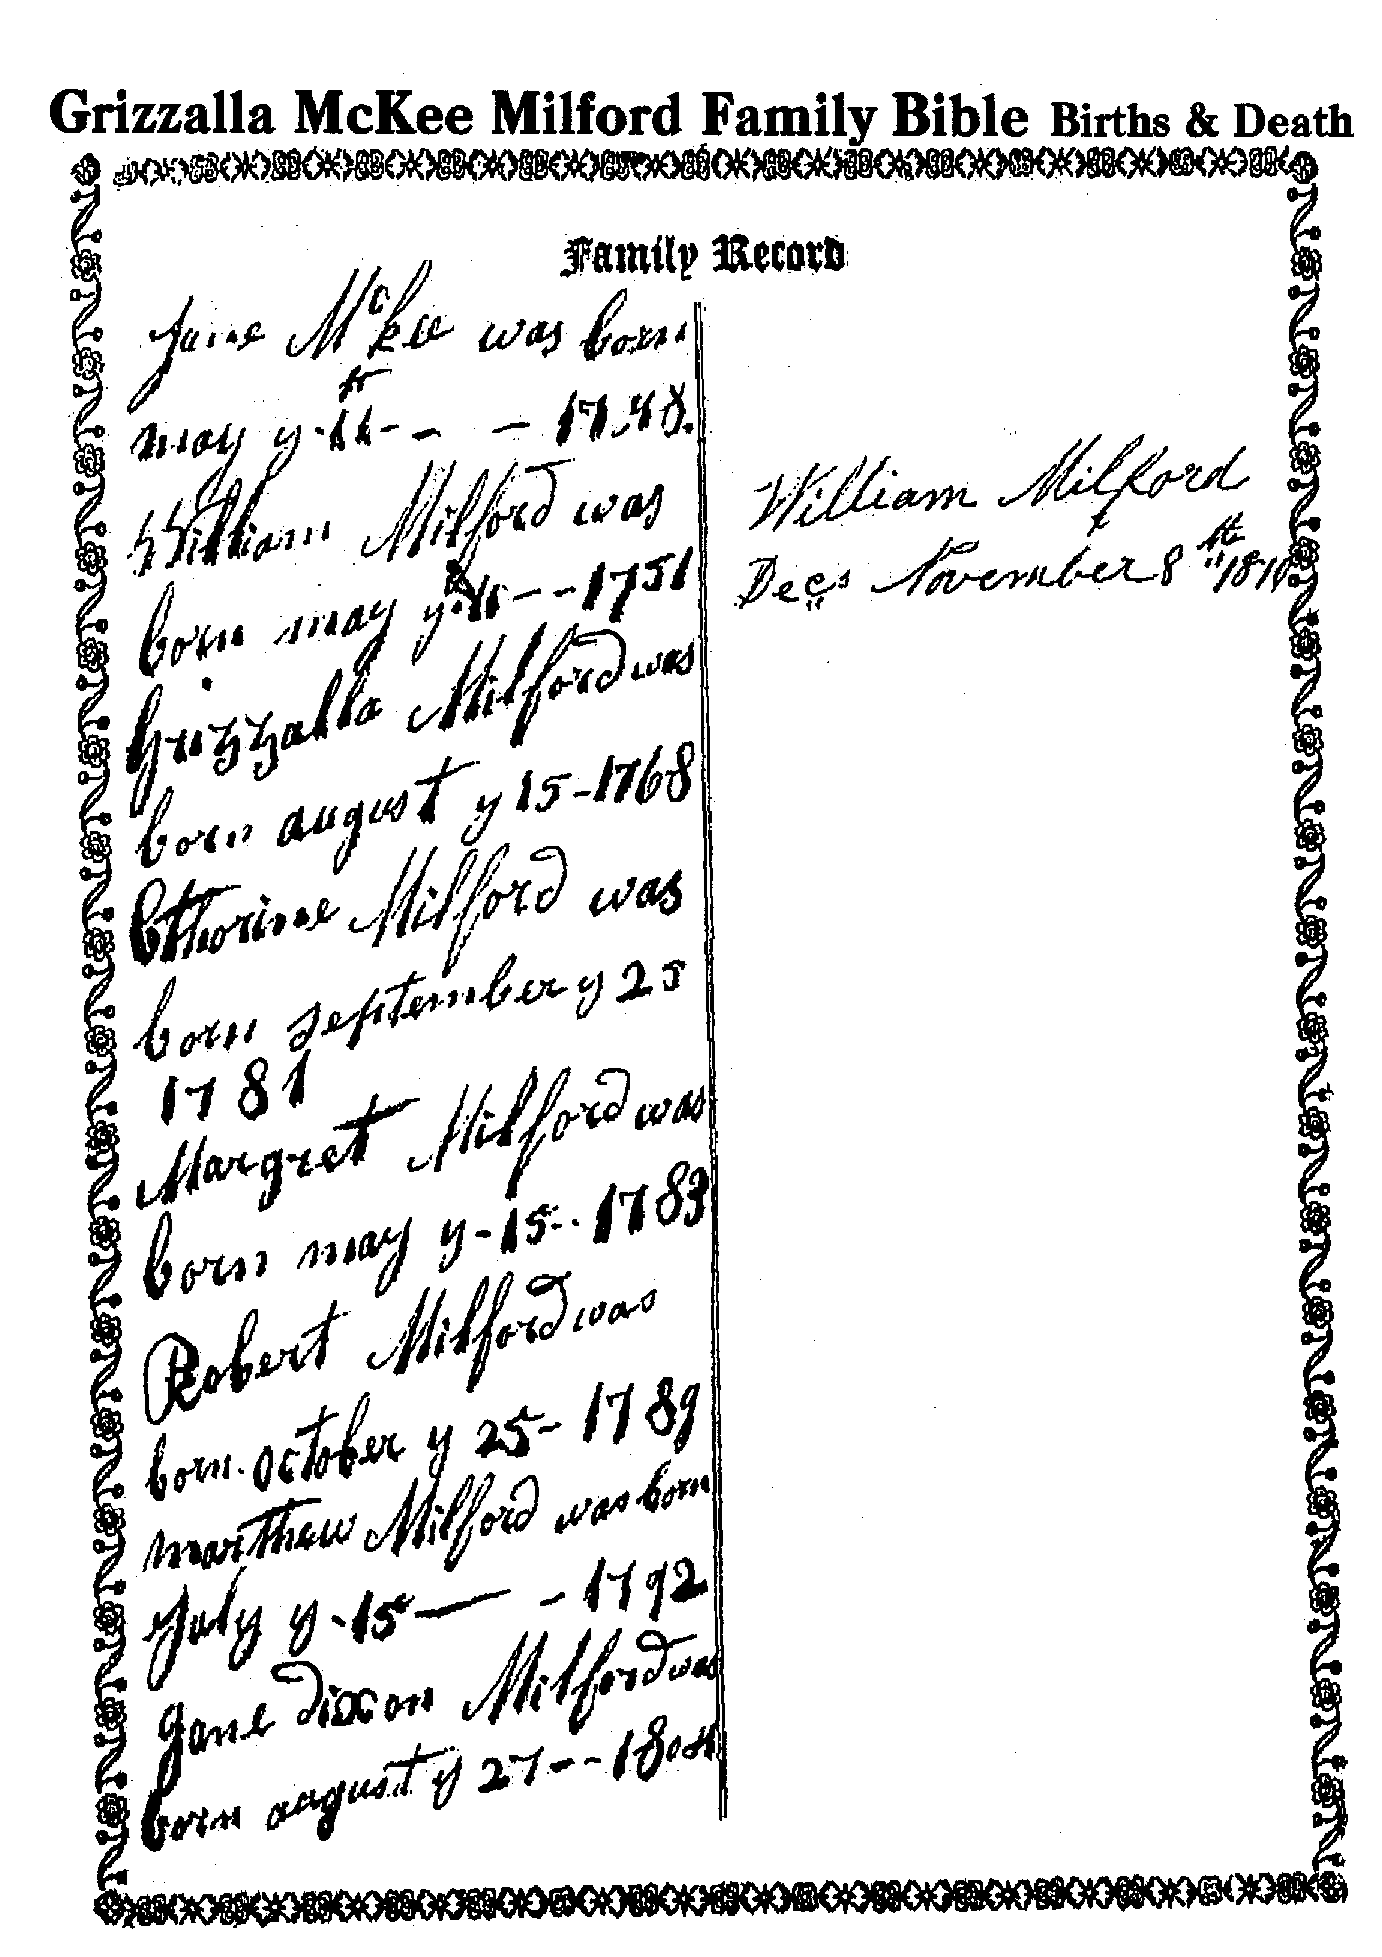 Grizzalla McKee Milford Family Bible Births & Death
Family Record
Jane McKee was born
may y 11 - - - 1748.
William Milford was
born may y - - 1751
Grizzalla Milford was
born august y 15 - 1768
Cthorine Milford was
born september y 25
1781
Margret Milford was
born may y - 15 - 1783
Robert Milford was
born october y 25 - 1789
marthew Milford was born
July y - 15 - - 1792
Jane dixon Milford was
born august y 27 - - 180
William Milford
Decs November 8th